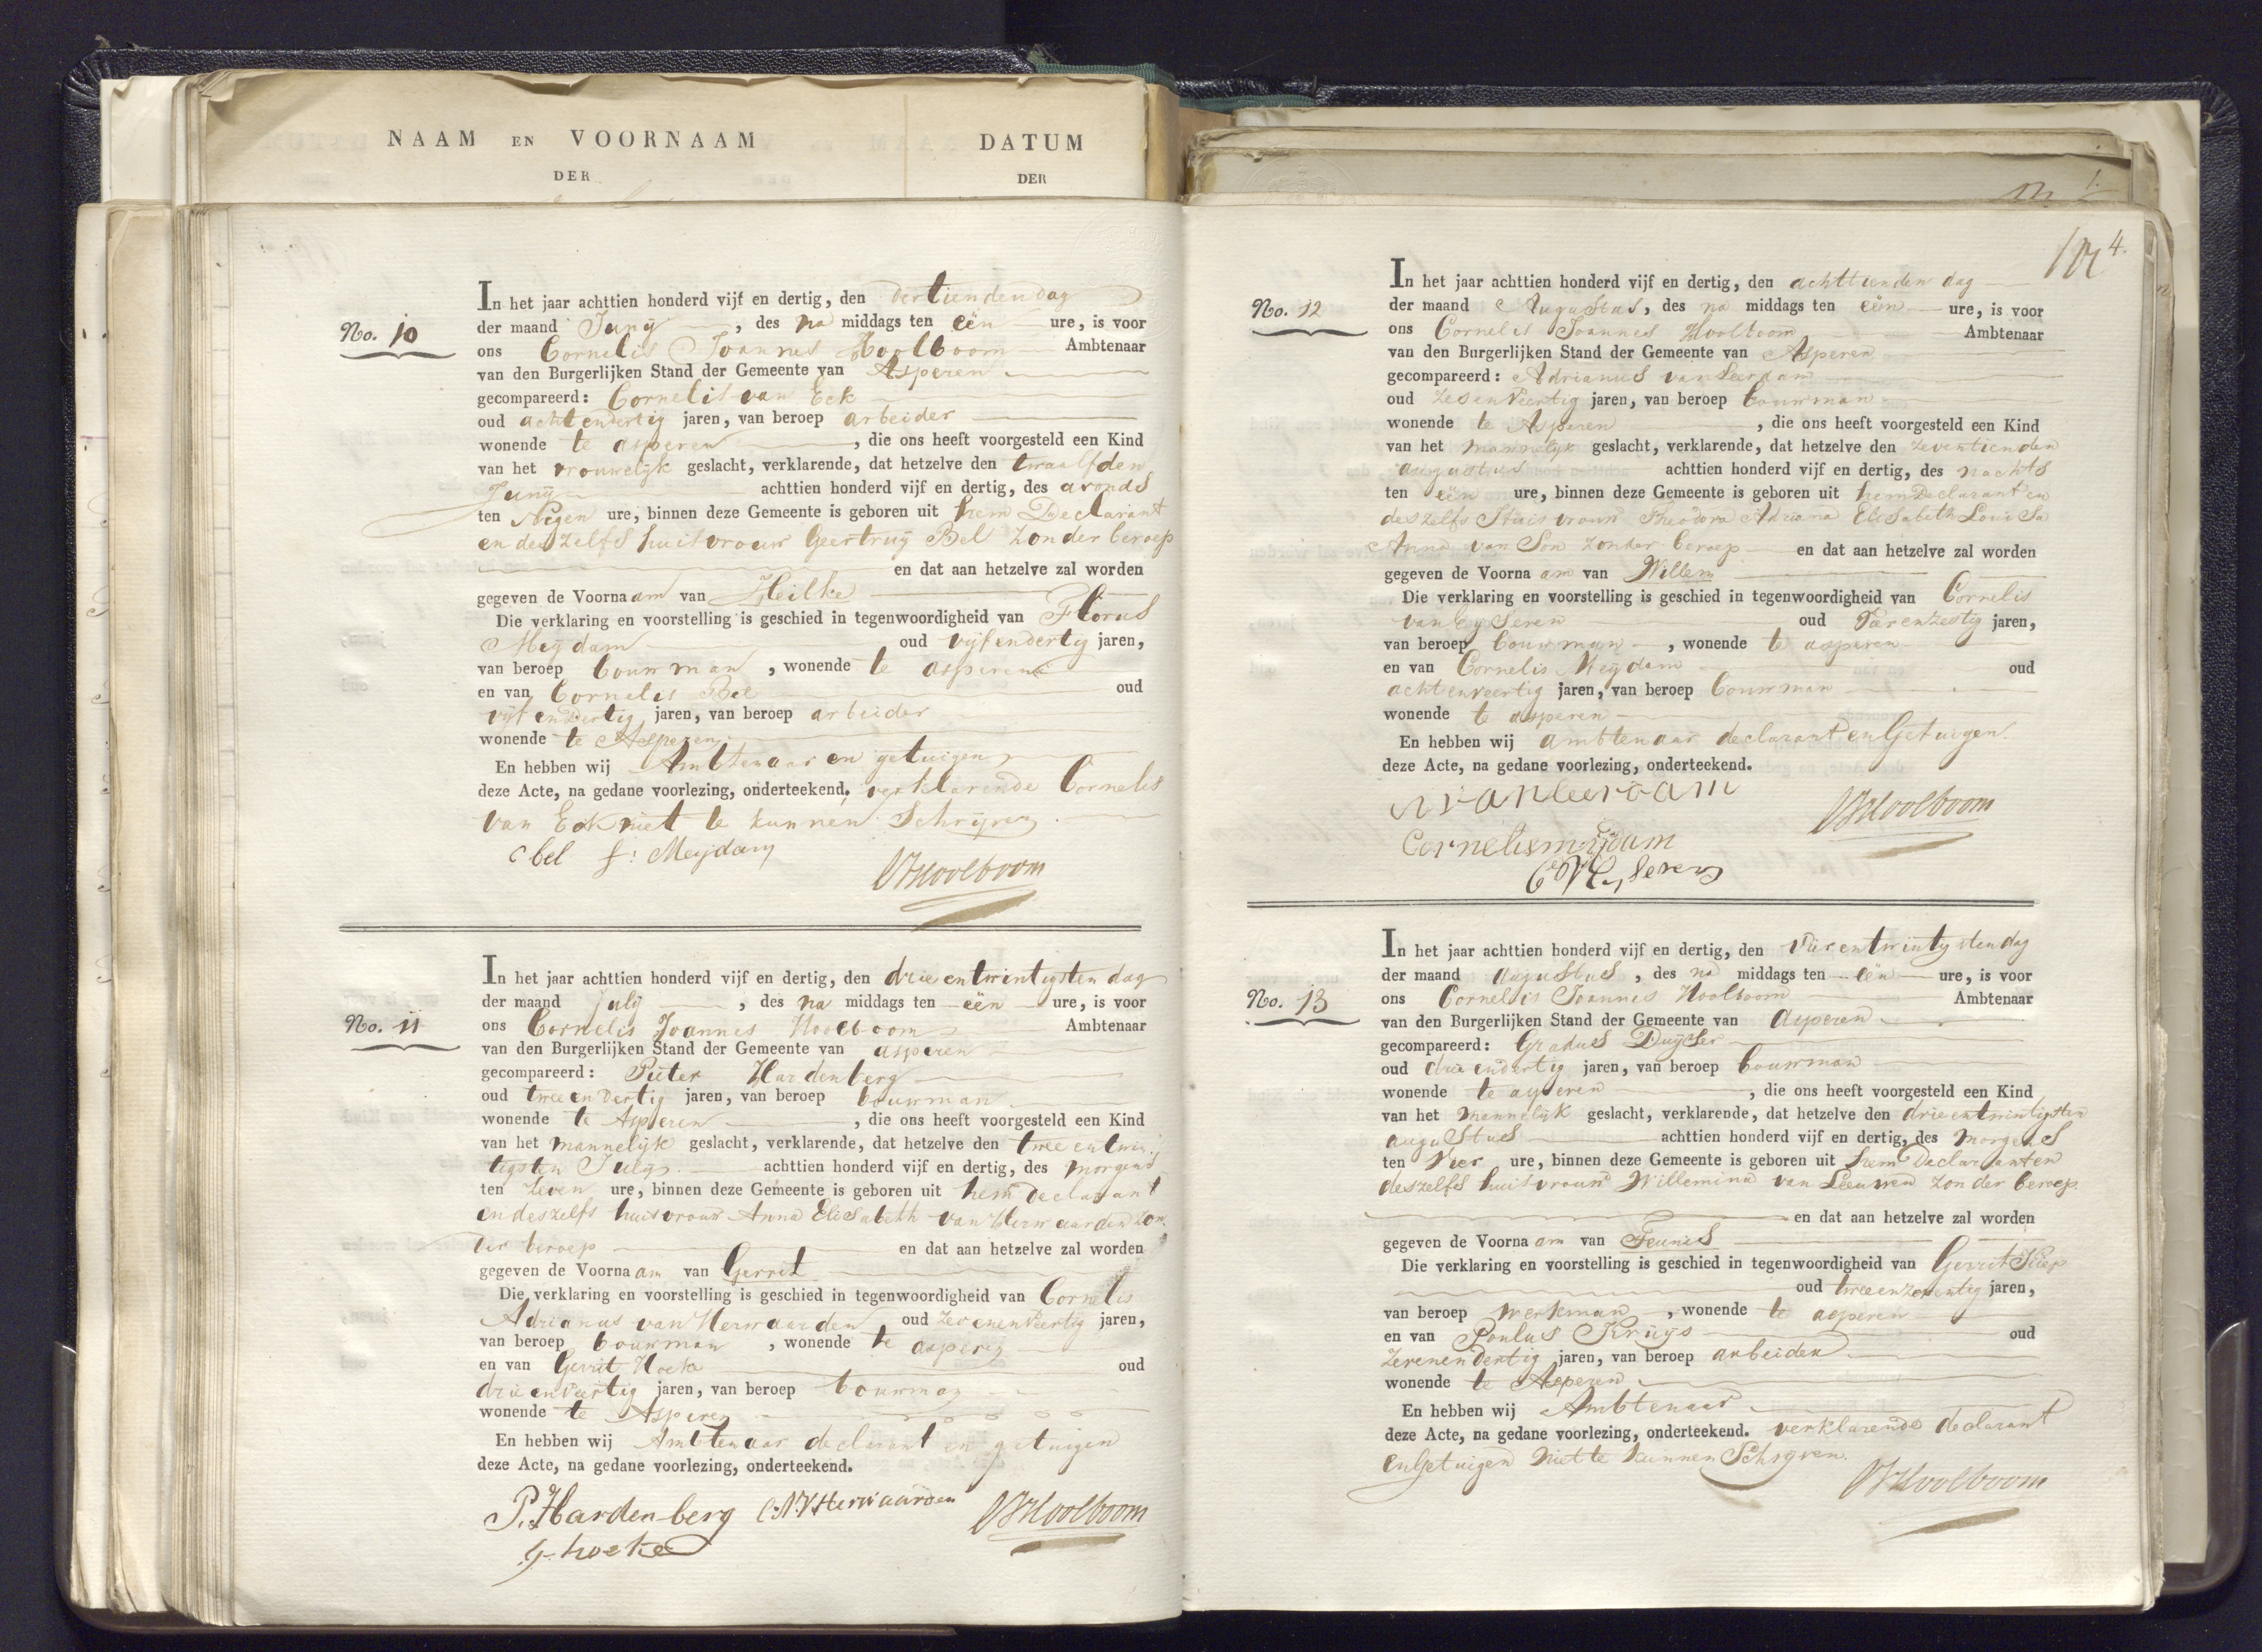 NAAM EN VOORNAAM
DER
DATUM
DER
No. 10
In het jaar achttien honderd vijf en dertig, den dertienden dag
der maand Junij, des na middags ten eën ure, is voor
ons Cornelis Joannes Hoolboom Ambtenaar
van den Burgerlijken Stand der Gemeente van Asperen
gecompareerd: Cornelis van Eck
oud acht en dertig jaren, van beroep arbeider
wonende te asperen, die ons heeft voorgesteld een Kind
van het vrouwelijk geslacht, verklarende, dat hetzelve den twaalfden
Junij achttien honderd vijf en dertig, des avonds
ten Negen ure, binnen deze Gemeente is geboren uit hem Declarant
en deszelfs huisvrouw Geertruij Bel Zonder beroep
en dat aan hetzelve zal worden
gegeven de Voornaam van Heilke
Die verklaring en voorstelling is geschied in tegenwoordigheid van Florus
Meijdam oud vijf en dertig jaren,
van beroep bouwman, wonende te asperen
en van Cornelis Bel oud
vijf en dertig jaren, van beroep arbeider
wonende te Asperen
En hebben wij Ambtenaar en getuigen
deze Acte, na gedane voorlezing, onderteekend, verklarende Cornelis
van Eck niet te kunnen Schrijven
C bel f: Meijdam
CJHoolboom
No. 11
In het jaar achttien honderd vijf en dertig, den drie entwintigsten dag
der maand july, des na middags ten eën ure, is voor
ons Cornelis Joannes Hoolboom Ambtenaar
van den Burgerlijken Stand der Gemeente van asperen
gecompareerd: Pieter Hardenberg
oud twee en dertig jaren, van beroep bouwman
wonende te Asperen, die ons heeft voorgesteld een Kind
van het mannelijk geslacht, verklarende, dat hetzelve den twee entwin
tigsten July achttien honderd vijf en dertig, des morgens
ten Zeven ure, binnen deze Gemeente is geboren uit hem declarant
en deszelfs huisvrouw Anna Elisabeth van Herwaarden zon
der beroep en dat aan hetzelve zal worden
gegeven de Voornaam van Gerrit
Die verklaring en voorstelling is geschied in tegenwoordigheid van Cornelis
Adrianus van Herwaarden oud zevenenveertig jaren,
van beroep bouwman, wonende te asperen
en van Gerrit Hoeke oud
drie enveertig jaren, van beroep bouwman
wonende te Asperen
En hebben wij Ambtenaar declarant en getuigen
deze Acte, na gedane voorlezing, onderteekend.
P. Hardenberg C:A:V:Herwaarden CJHoolboom
G hoeke
4.
No. 12
In het jaar achttien honderd vijf en dertig, den achttienden dag
der maand Augustus, des na middags ten eën ure, is voor
ons Cornelis Joannes Hoolboom Ambtenaar
van den Burgerlijken Stand der Gemeente van Asperen
gecompareerd: Adrianus van Leerdam
oud zesenveertig jaren, van beroep bouwman
wonende te Asperen, die ons heeft voorgesteld een Kind
van het mannelijk geslacht, verklarende, dat hetzelve den zeventienden
augustus achttien honderd vijf en dertig, des nachts
ten eën ure, binnen deze Gemeente is geboren uit hem Declarant en
deszelfs Huisvrouw Theodora Adriana Elisabeth Louisa
Anna van Son zonder beroep en dat aan hetzelve zal worden
gegeven de Voornaam van Willem
Die verklaring en voorstelling is geschied in tegenwoordigheid van Cornelis
van Eijseren oud vierenzestig jaren,
van beroep bouwman, wonende te asperen
en van Cornelis Meijdam oud
achtenveertig jaren, van beroep bouwman
wonende te asperen
En hebben wij ambtenaar declarant en Getuigen
deze Acte, na gedane voorlezing, onderteekend.
A van leerdam
CJHoolboom
Cornelis mijdam
C V Eijseren
No. 13
In het jaar achttien honderd vijf en dertig, den Vier entwintigsten dag
der maand augustus, des na middags ten eën ure, is voor
ons Cornelis Joannes Hoolboom Ambtenaar
van den Burgerlijken Stand der Gemeente van Asperen
gecompareerd: Gradus Duijser
oud drie endertig jaren, van beroep bouwman
wonende te asperen, die ons heeft voorgesteld een Kind
van het mannelijk geslacht, verklarende, dat hetzelve den drieentwintigsten
augustus achttien honderd vijf en dertig, des morgens
ten Vier ure, binnen deze Gemeente is geboren uit hem Declarant en
deszelfs huisvrouw Willemina van Leeuwen zonder beroep
en dat aan hetzelve zal worden
gegeven de Voornaam van Teunis
Die verklaring en voorstelling is geschied in tegenwoordigheid van Gerrit
oud tweeenzeventig jaren,
van beroep werkman, wonende te asperen
en van Poulus Kruijs oud
zevenendertig jaren, van beroep arbeider
wonende te Asperen
En hebben wij Ambtenaar
deze Acte, na gedane voorlezing, onderteekend. verklarende declarant
en Getuigen Niet te kunnen Schryven.
CJHoolboom